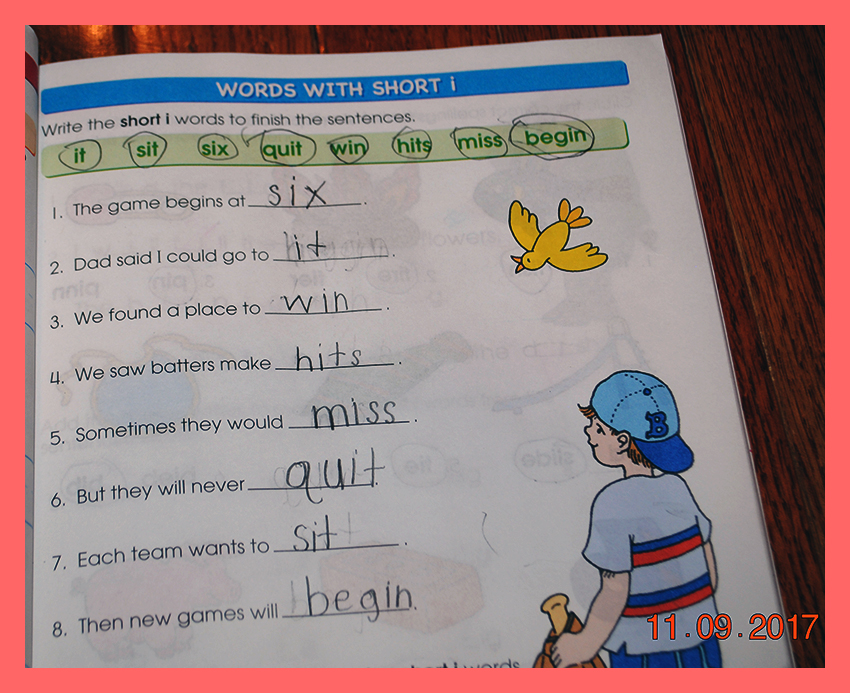 WORDS WITH SHORT i
Write the short i words to finish the sentences.
it sit six quit win hits miss begin
1. The game begins at six.
2. Dad said I could go to it.
3. We found a place to win.
4. We saw batters make hits.
5. Sometimes they would miss.
6. But they will never quit.
7. Each team wants to sit.
8. Then new games will begin.
B
11.09.2017